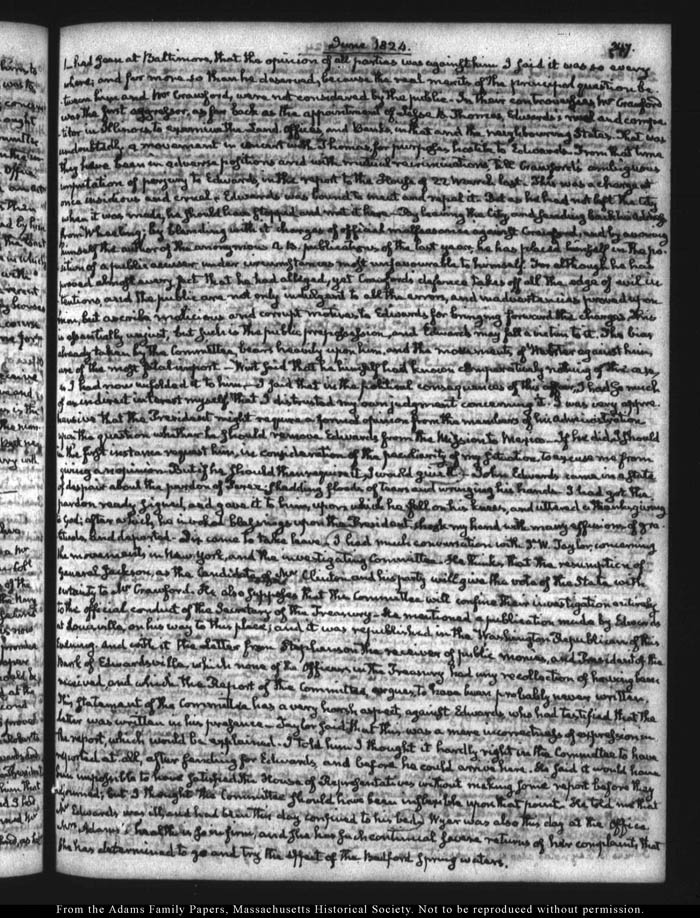 June 1824.
347.
he had seen at Baltimore, that the opinion of all parties was against him. I said it was so every
where; and far more so than he deserved, because the real merits of the principal question be-
tween him and Mr Crawford, were not considered by the public. In their controversies Mr Crawford
was the first aggressor, as far back as the appointment of Jesse B. Thomas, Edwards's rival and compe-
titor in Illinois, to examine the Land Offices and Banks, in that and the neighbouring States. That was
undoubtedly a movement in concert with Thomas, for purposes hostile to Edwards. From that time
they have been in adverse positions and with mutual recriminations, till Crawford's ambiguous
imputation of perjury to Edwards, in the report to the House of 22 March last. This was a charge at
once insidious and cruel. Edwards was bound to meet and repel it. But as he had not left the City
when it was made, he should have stopped and met it here. By leaving the City and sending back his address
from Wheeling; by blending with it charges of official malfeasance against Crawford, and by avowing
himself the author of the anonymous A.B. publications of the last year, he has placed himself in the po-
sition of a public accuser under circumstances most unfavourable to himself. For although he has
proved almost every fact that he had alleged, yet Crawford's defence takes off all the edge of evil in-
tentions and the public are not only indulgent to all the errors, and inadvertencies proved upon
him, but ascribe malicious and corrupt motives to Edwards for bringing forward the charges. This
is essentially unjust, but such is the public prepossession, and Edwards may fall a victim to it. The bias
already taken by the Committee, bears heavily upon him, and the movements of Webster against him
are of the most fatal import. — Wirt said that he himself had known comparatively nothing of the case
as I had now unfolded it to him. — I said that in the political consequences of this affair, I had so much
of an indirect interest myself that I distrusted my own judgment concerning it. I was very appre-
hensive that the President might require a formal opinion from the members of his administration
upon the question whether he should remove Edwards from the Mission to Mexico. If he did I should
in the first instance request him, in consideration of the peculiarity of my situation, to excuse me from
giving an opinion. But if he should then require it, I would give it. John Edwards came in a state
of despair about the pardon of Perez; shedding floods of tears and wringing his hands. I had got the
pardon ready, signed, and gave it to him, upon which he fell on his knees, and uttered a thanksgiving
to God; after which, he invoked blessings upon the President, shook my hand with many effusions of gra-
titude, and departed. — came to take leave. I had much conversation with J. W. Taylor, concerning
the movements in New York, and the investigating Committee. He thinks that the resumption of
General Jackson, as the Candidate, by Mr Clinton and his party will give the vote of the State with
certainty to Mr Crawford. He also supposes that the Committee will confine their investigation entirely
to the official conduct of the Secretary of the Treasury. He mentioned a publication made by Edwards
at Louisville, on his way to this place; and it was republished in the Washington Republican of this
Evening. and with it the letter from Stephenson the receiver of public monies, and President of the
Bank of Edwardsville, which none of the Officers in the Treasury had any recollection of having been
received, and which the Report of the Committee, argues, to have been probably never written.
This statement of the Committee has a very harsh aspect, against Edwards, who had testified that the
letter was written in his presence. Taylor said that this was a mere incorrectness of expression in
the report, which would be explained. I told him I thought it hardly right in the Committee to have
reported at all, after sending for Edwards, and before he could arrive here. He said it would have
been impossible to have satisfied the House of Representatives without making some report before they
adjourned; but I thought the Committee should have been inflexible upon that point. He told me that
Mr Edwards was ill, and had been this day confined to his bed. Wyer was also this day at the Office.
Mrs Adams's health is so infirm, and she has such continual severe returns of her complaint, that
she has determined to go and try the effect of the Bedford Spring waters.
From the Adams Family Papers, Massachusetts Historical Society. Not to be reproduced without permission.